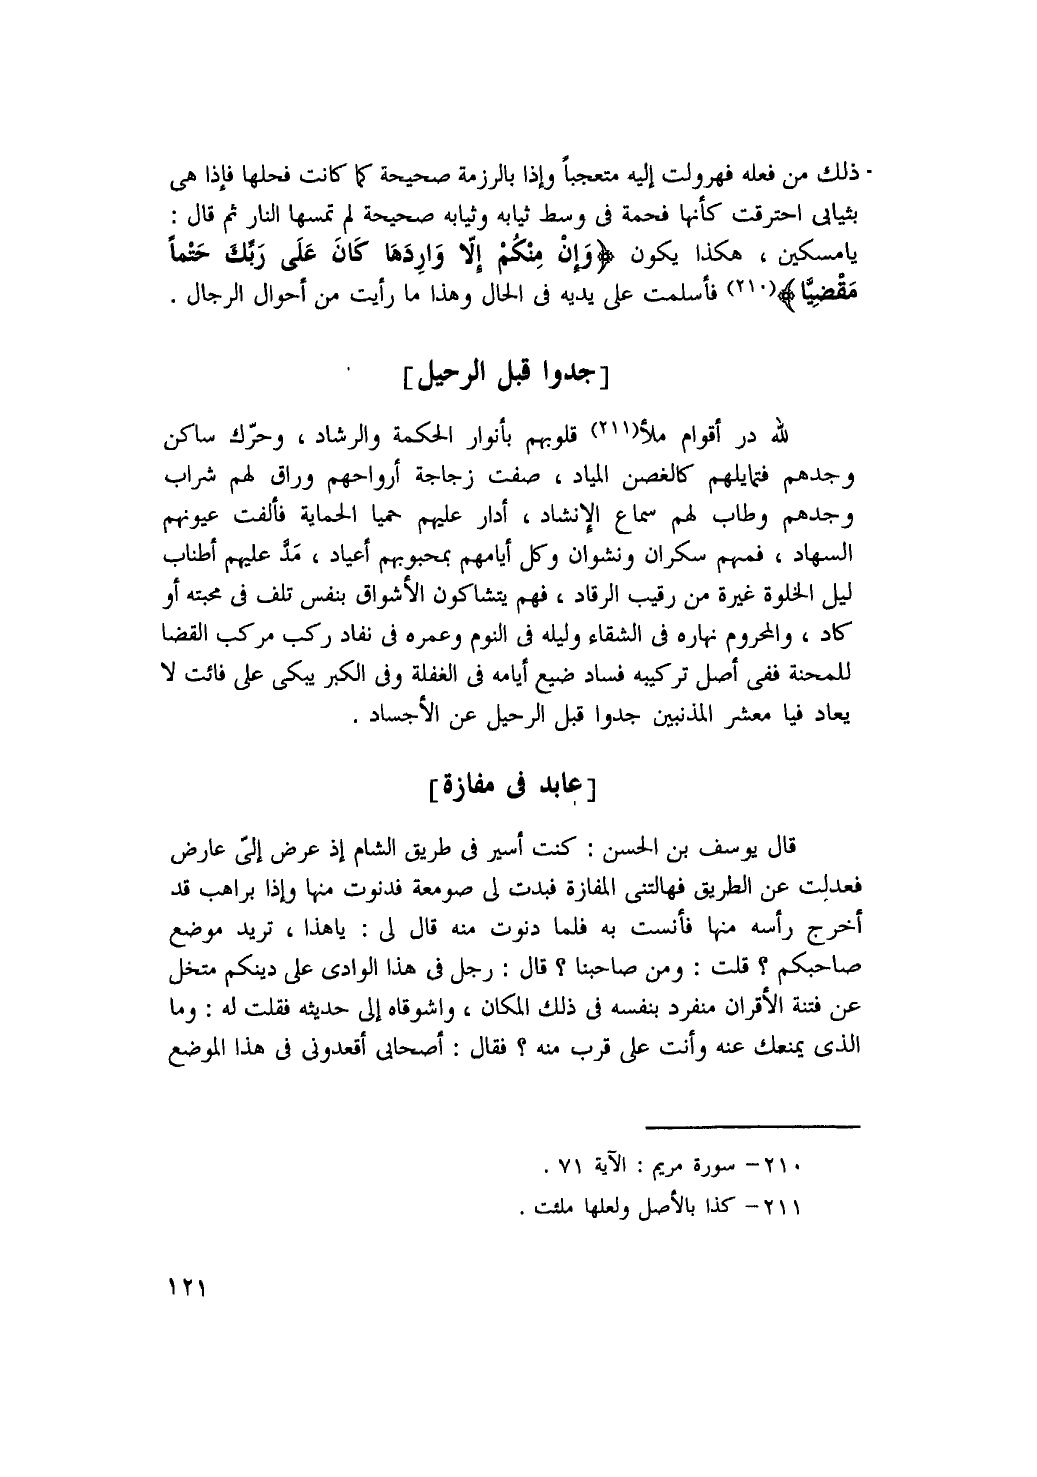 ذلك من فعله فهرولت إليه متعجباً وإذا بالرزمة صحيحة كما كانت فحلها فإذا هى
بثيابى احترقت كأنها فحمة فى وسط ثيابه وثيابه صحيحة لم تمسها النار ثم قال :
يامسكين ، هكذا يكون ﴿وَإِنْ مِنْكُمْ إِلَّا وَارِدَهَا كَانَ عَلَى رَبِّكَ حَتْماً
مَقْضِيًّا﴾(٢١٠) فأسلمت على يديه فى الحال وهذا ما رأيت من أحوال الرجال .
[جدوا قبل الرحيل]
لله در أقوام ملأ(٢١١) قلوبهم بأنوار الحكمة والرشاد ، وحرّك ساكن
وجدهم فتمايلهم كالغصن المياد ، صفت زجاجة أرواحهم وراق لهم شراب
وجدهم وطاب لهم سماع الإنشاد ، أدار عليهم حميا الحماية فألفت عيونهم
السهاد ، فمنهم سكران ونشوان وكل أيامهم بمحبوبهم أعياد ، مَدَّ عليهم أطناب
ليل الخلوة غيرة من رقيب الرقاد ، فهم يتشاكون الأشواق بنفس تلف فى محبته أو
كاد ، والمحروم نهاره فى الشقاء وليله فى النوم وعمره فى نفاد ركب مركب القضا
للمحنة ففى أصل تركيبه فساد ضيع أيامه فى الغفلة وفى الكبر يبكى على فائت لا
يعاد فيا معشر المذنبين جدوا قبل الرحيل عن الأجساد .
[عابد فى مفازة]
قال يوسف بن الحسن : كنت أسير فى طريق الشام إذ عرض إلىّ عارض
فعدلت عن الطريق فهالتنى المفازة فبدت لى صومعة فدنوت منها وإذا براهب قد
أخرج رأسه منها فأنست به فلما دنوت منه قال لى : ياهذا ، تريد موضع
صاحبكم ؟ قلت : ومن صاحبنا ؟ قال : رجل فى هذا الوادى على دينكم متخل
عن فتنة الأقران منفرد بنفسه فى ذلك المكان ، واشوقاه إلى حديثه فقلت له : وما
الذى يمنعك عنه وأنت على قرب منه ؟ فقال : أصحابى أقعدونى فى هذا الموضع
٢١٠– سورة مريم : الآية ٧١ .
٢١١– كذا بالأصل ولعلها ملئت .
١٢١